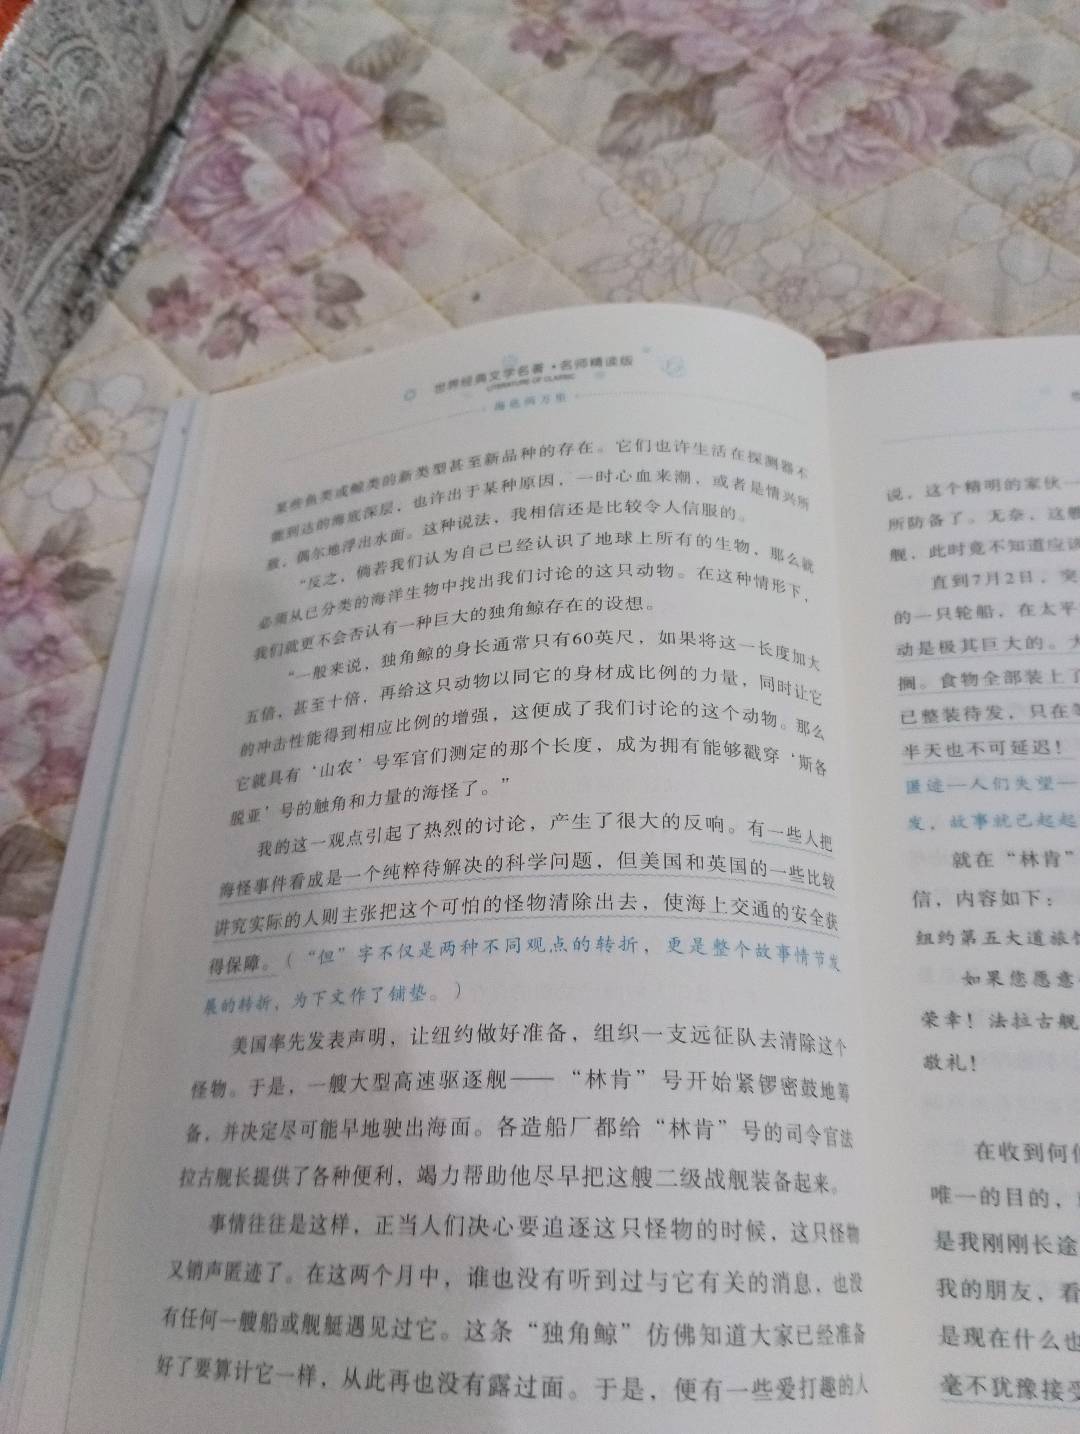 世界经典文学名著·名师精读版
LITERATURE OF CLASSIC
海底两万里
某些鱼类或鲸类的新类型甚至新品种的存在。它们也许生活在探测器不
能到达的海底深层，也许出于某种原因，一时心血来潮，或者是情兴所
致，偶尔地浮出水面。这种说法，我相信还是比较令人信服的。
“反之，倘若我们认为自己已经认识了地球上所有的生物，那么就
必须从已分类的海洋生物中找出我们讨论的这只动物。在这种情形下，
我们就更不会否认有一种巨大的独角鲸存在的设想。
“一般来说，独角鲸的身长通常只有60英尺，如果将这一长度加大
五倍，甚至十倍，再给这只动物以同它的身材成比例的力量，同时让它
的冲击性能得到相应比例的增强，这便成了我们讨论的这个动物。那么
它就具有‘山农’号军官们测定的那个长度，成为拥有能够戳穿‘斯各
脱亚’号的触角和力量的海怪了。”
我的这一观点引起了热烈的讨论，产生了很大的反响。有一些人把
海怪事件看成是一个纯粹待解决的科学问题，但美国和英国的一些比较
讲究实际的人则主张把这个可怕的怪物清除出去，使海上交通的安全获
得保障。（“但”字不仅是两种不同观点的转折，更是整个故事情节发
展的转折，为下文作了铺垫。）
美国率先发表声明，让纽约做好准备，组织一支远征队去清除这个
怪物。于是，一艘大型高速驱逐舰——“林肯”号开始紧锣密鼓地筹
备，并决定尽可能早地驶出海面。各造船厂都给“林肯”号的司令官法
拉古舰长提供了各种便利，竭力帮助他尽早把这艘二级战舰装备起来。
事情往往是这样，正当人们决心要追逐这只怪物的时候，这只怪物
又销声匿迹了。在这两个月中，谁也没有听到过与它有关的消息，也没
有任何一艘船或舰艇遇见过它。这条“独角鲸”仿佛知道大家已经准备
好了要算计它一样，从此再也没有露过面。于是，便有一些爱打趣的人
说，这个精明的家伙一
所防备了。无奈，这艘
舰，此时竟不知道应该
直到7月2日，突
的一只轮船，在太平
动是极其巨大的。大
搁。食物全部装上了
已整装待发，只在等
半天也不可延迟！
匿迹—人们失望—
发，故事就已起起
就在“林肯”
信，内容如下：
纽约第五大道旅馆
如果您愿意
荣幸！法拉古舰
敬礼！
在收到何
唯一的目的，
是我刚刚长途
我的朋友，看
是现在什么也
毫不犹豫接受